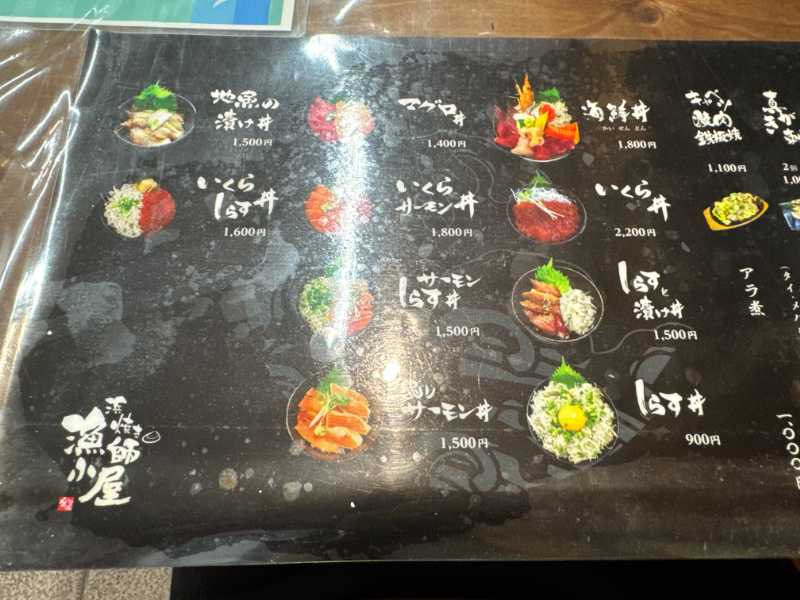 地魚の
漬け丼
1,500円
マグロ
丼
1,400円
海鮮丼
かい せん どん
1,800円
キャベツ
豚肉
鉄板焼
1,100円
いくら
しらす丼
1,600円
いくら
サーモン丼
1,800円
いくら
丼
2,200円
サーモン
しらす丼
1,500円
しらすと
漬け丼
1,500円
アラ煮
サーモン丼
1,500円
しらす丼
900円
浜焼き
漁師
小屋